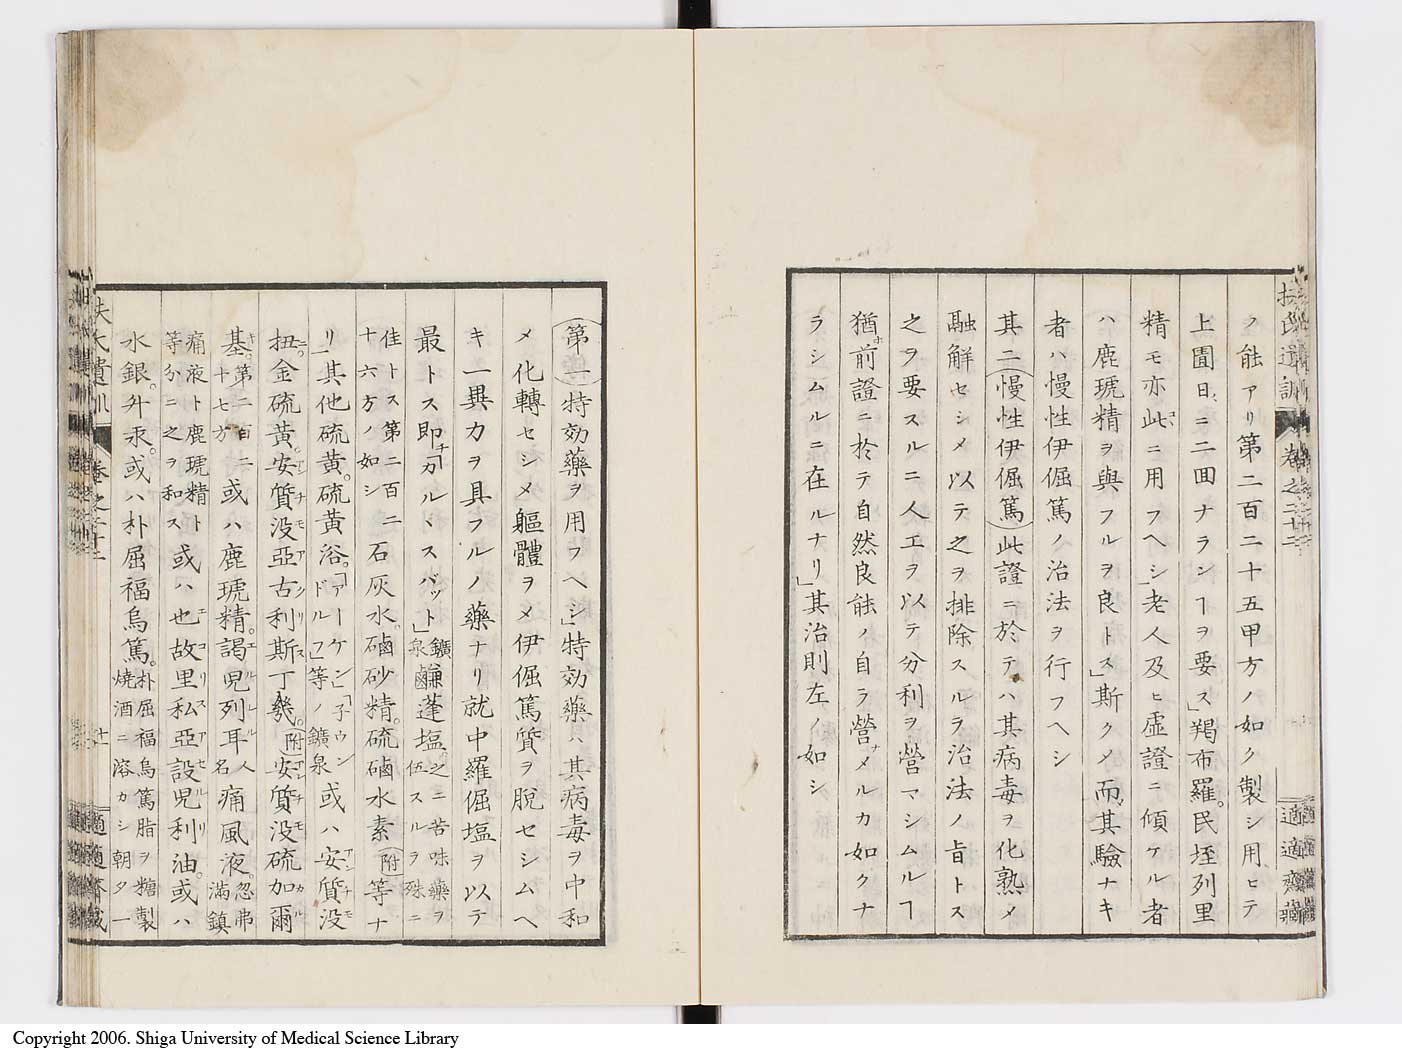 扶氏遺訓 卷之二十二 適適齋藏
ノ能アリ第二百二十五甲方ノ如ク製シ用ヒテ
上圊日ニ二回ナランヿヲ要ス」羯布羅。民垤列里
精モ亦此ニ用フヘシ」老人及ヒ虚證ニ傾ケル者
ハ鹿琥精ヲ與フルヲ良トス」斯クメ而其驗ナキ
者ハ慢性伊倔篤ノ治法ヲ行フヘシ
其二(慢性伊倔篤)此證ニ於テハ其病毒ヲ化熟メ
融解セシメ以テ之ヲ排除スルヲ治法ノ旨トス
之ヲ要スルニ人工ヲ以テ分利ヲ營マシムルヿ
猶前證ニ於テ自然良能ノ自ラ營メルカ如クナ
ラシムルニ在ルナリ」其治則左ノ如シ
(第一)特効藥ヲ用フヘシ」特効藥ハ其病毒ヲ中和
メ化轉セシメ軀體ヲメ伊倔篤質ヲ脱セシムヘ
キ一異力ヲ具フルノ藥ナリ就中羅倔塩ヲ以テ
最トス即「カルヽスバット」鑛泉鹻蓬塩。之ニ苦味藥ヲ伍スルヲ殊ニ
佳トス第二百二十六方ノ如シ石灰水。磠砂精。硫磠水素(附)等ナ
リ」其他硫黄。硫黄浴。「アーケン」「子ウンドルフ」等ノ鑛泉或ハ安質没
扭金硫黄。安質没亞古利斯丁幾。(附)安質没硫加爾
基。第二百二十七方或ハ鹿琥精。謁児列耳人名痛風液。忽弗滿鎮
痛液ト鹿琥精ト等分ニ之ヲ和ス或ハ也故里私亞設児利油。或ハ
水銀。升汞。或ハ朴屈福烏篤。朴屈福烏篤脂ヲ糖製燒酒ニ溶カシ朝夕一
扶氏遺訓 卷之二十二 十一 適適齋藏
Copyright 2006. Shiga University of Medical Science Library